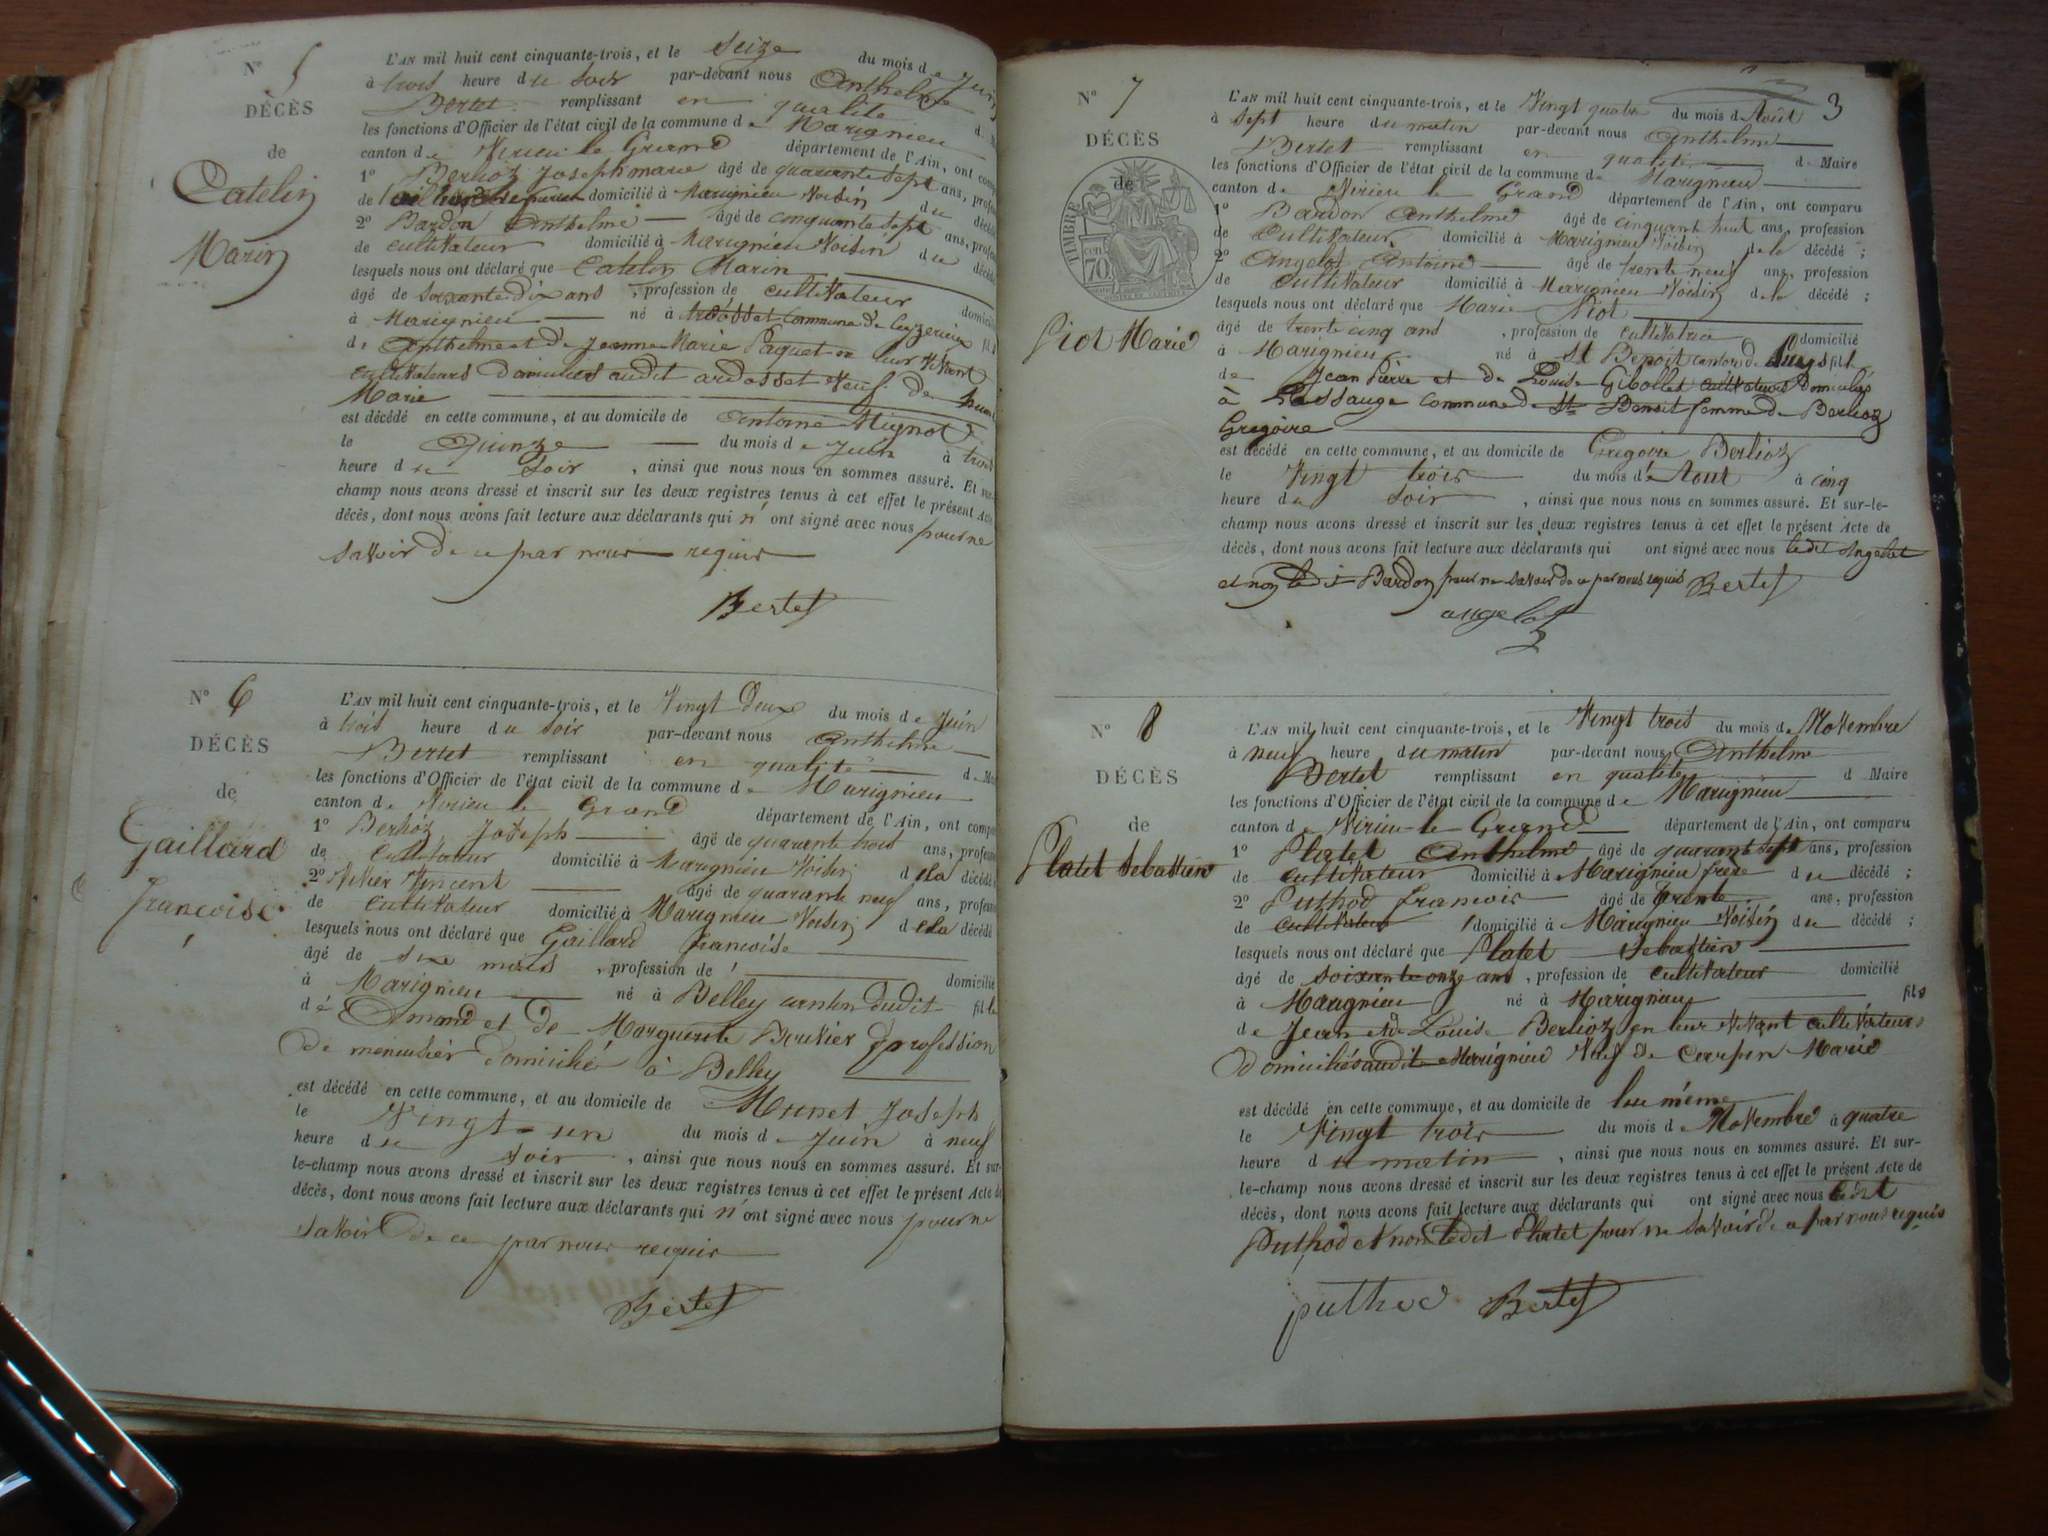 N° 5
DÉCÈS
de
Catelin
Marin
L'AN mil huit cent cinquante-trois, et le seize du mois de Juin
à trois heure du soir par-devant nous Anthelme
Bertet remplissant en qualité d
les fonctions d'Officier de l'état civil de la commune de Marignieu
canton de Virieu le Grand département de l'Ain, ont comp
1° Berlioz Joseph marie âgé de quarante sept ans, profes
de domicilié à Marignieu Voisin du décédé
2° Bardon Anthelme âgé de cinquante sept ans, profes
de cultivateur domicilié à Marignieu Voisin du décédé
lesquels nous ont déclaré que Catelin Marin
âgé de soixante dix ans, profession de cultivateur domicilié
à Marignieu né à commune de Ceyzerieu fils
de Anthelme et de Jeanne Marie Paquet en leur Vivant
cultivateurs domiciliés audit ardosset Veuf de
Marie
est décédé en cette commune, et au domicile de Antoine Mignot
le Quinze du mois de Juin à trois
heure du soir, ainsi que nous nous en sommes assuré. Et sur-
champ nous avons dressé et inscrit sur les deux registres tenus à cet effet le présent Acte
décès, dont nous avons fait lecture aux déclarants qui n'ont signé avec nous pour ne
savoir de ce par nous requis
Bertet
N° 6
DÉCÈS
de
Gaillard
francoise
L'AN mil huit cent cinquante-trois, et le Vingt deux du mois de Juin
à trois heure du soir par-devant nous Anthelme
Bertet remplissant en qualité de Mai
les fonctions d'Officier de l'état civil de la commune de Marignieu
canton de Virieu le Grand département de l'Ain, ont compa
1° Berlioz Joseph âgé de quarante trois ans, profession
de cultivateur domicilié à Marignieu Voisin de la décédé
2° Vincent âgé de quarante neuf ans, profession
de cultivateur domicilié à Marignieu Voisin de la décédé
lesquels nous ont déclaré que Gaillard francoise
âgé de six mois, profession de domicilié
à Marignieu né à Belley canton dudit fille
de Amand et de Marguerite Bouvier profession
de menuisier domicilié à Belley
est décédé en cette commune, et au domicile de Munet Joseph
le Vingt-un du mois de Juin à neuf
heure du soir, ainsi que nous nous en sommes assuré. Et sur-
le-champ nous avons dressé et inscrit sur les deux registres tenus à cet effet le présent Acte de
décès, dont nous avons fait lecture aux déclarants qui n'ont signé avec nous pour ne
savoir de ce par nous requis
Bertet
3
N° 7
DÉCÈS
de
TIMBRE
70
Piot Marie
L'AN mil huit cent cinquante-trois, et le Vingt quatre du mois d'Août
à sept heure du matin par-devant nous Anthelme
Bertet remplissant en qualité de Maire
les fonctions d'Officier de l'état civil de la commune de Marignieu
canton de Virieu le Grand département de l'Ain, ont comparu
1° Bardon Anthelme âgé de cinquante huit ans, profession
de Cultivateur domicilié à Marignieu Voisin de la décédé ;
2° Angelot Antoine âgé de trente neuf ans, profession
de Cultivateur domicilié à Marignieu Voisin de la décédé ;
lesquels nous ont déclaré que Marie Piot
âgé de trente cinq ans, profession de cultivatrice domicilié
à Marignieu né à St Benoit canton de fille
de Jean Pierre et de Louise Gibollet cultivateurs domiciliés
à Passauge commune de St Benoit femme de Berlioz
Gregoire
est décédé en cette commune, et au domicile de Gregoire Berlioz
le Vingt trois du mois d'Aout à cinq
heure du soir, ainsi que nous nous en sommes assuré. Et sur-le-
champ nous avons dressé et inscrit sur les deux registres tenus à cet effet le présent Acte de
décès, dont nous avons fait lecture aux déclarants qui ont signé avec nous ledit Angelot
et non ledit Bardon pour ne savoir de ce par nous requis Bertet
angelot
N° 8
DÉCÈS
de
Platet Sebastien
L'AN mil huit cent cinquante-trois, et le Vingt trois du mois de Novembre
à neuf heure du matin par-devant nous Anthelme
Bertet remplissant en qualité d Maire
les fonctions d'Officier de l'état civil de la commune de Marignieu
canton de Virieu-le Grand département de l'Ain, ont comparu
1° Platet Anthelme âgé de quarante sept ans, profession
de cultivateur domicilié à Marignieu frère du décédé ;
2° Puthod francois âgé de trente ans, profession
de cultivateur domicilié à Marignieu Voisin du décédé ;
lesquels nous ont déclaré que Platet Sebastien
âgé de soixante onze ans, profession de cultivateur domicilié
à Marignieu né à Marignieu fils
de Jean et de Louise Berlioz en leur Vivant cultivateurs
domiciliés audit Marignieu Veuf de Carpin Marie
est décédé en cette commune, et au domicile de lui même
le Vingt trois du mois de Novembre à quatre
heure du matin, ainsi que nous nous en sommes assuré. Et sur-
le-champ nous avons dressé et inscrit sur les deux registres tenus à cet effet le présent Acte de
décès, dont nous avons fait lecture aux déclarants qui ont signé avec nous ledit
Puthod et non ledit Platet pour ne savoir de ce par nous requis
puthod Bertet